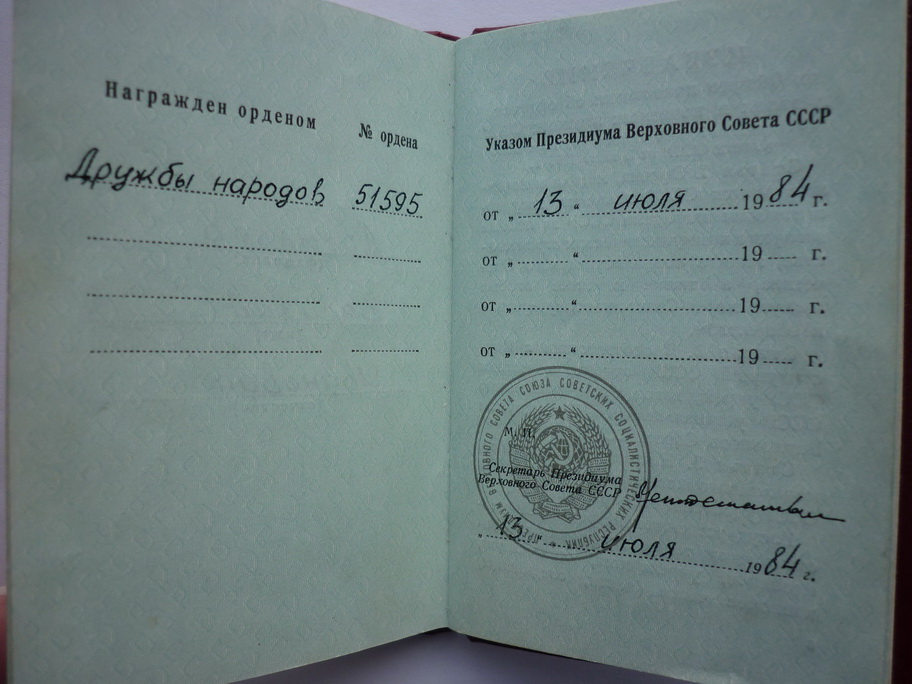 Награжден орденом
№ ордена
Дружбы народов 51595
Указом Президиума Верховного Совета СССР
от „ 13 “ июля 1984 г.
от „ “ 19 г.
от „ “ 19 г.
от „ “ 19 г.
ПРЕЗИДИУМ ВЕРХОВНОГО СОВЕТА СОЮЗА СОВЕТСКИХ СОЦИАЛИСТИЧЕСКИХ РЕСПУБЛИК
М. П.
Секретарь Президиума
Верховного Совета СССР
„ 13 “ июля 1984 г.